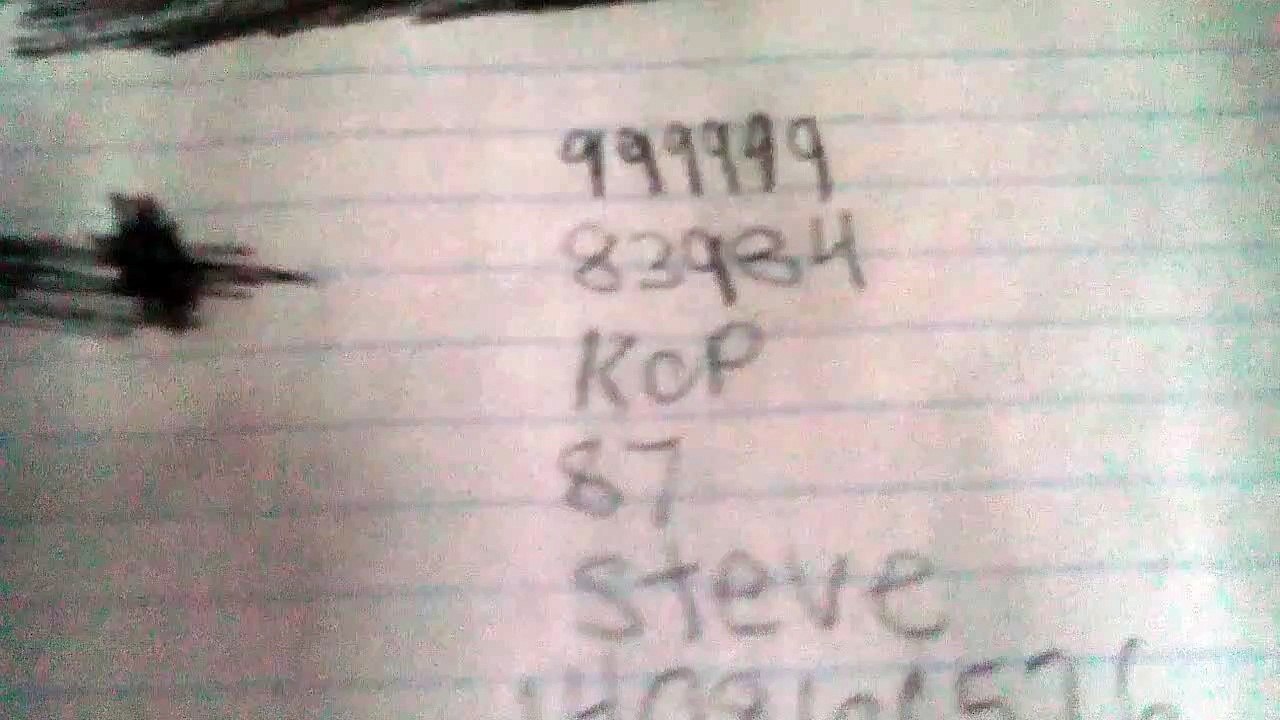 999999
83984
KOP
87
Steve